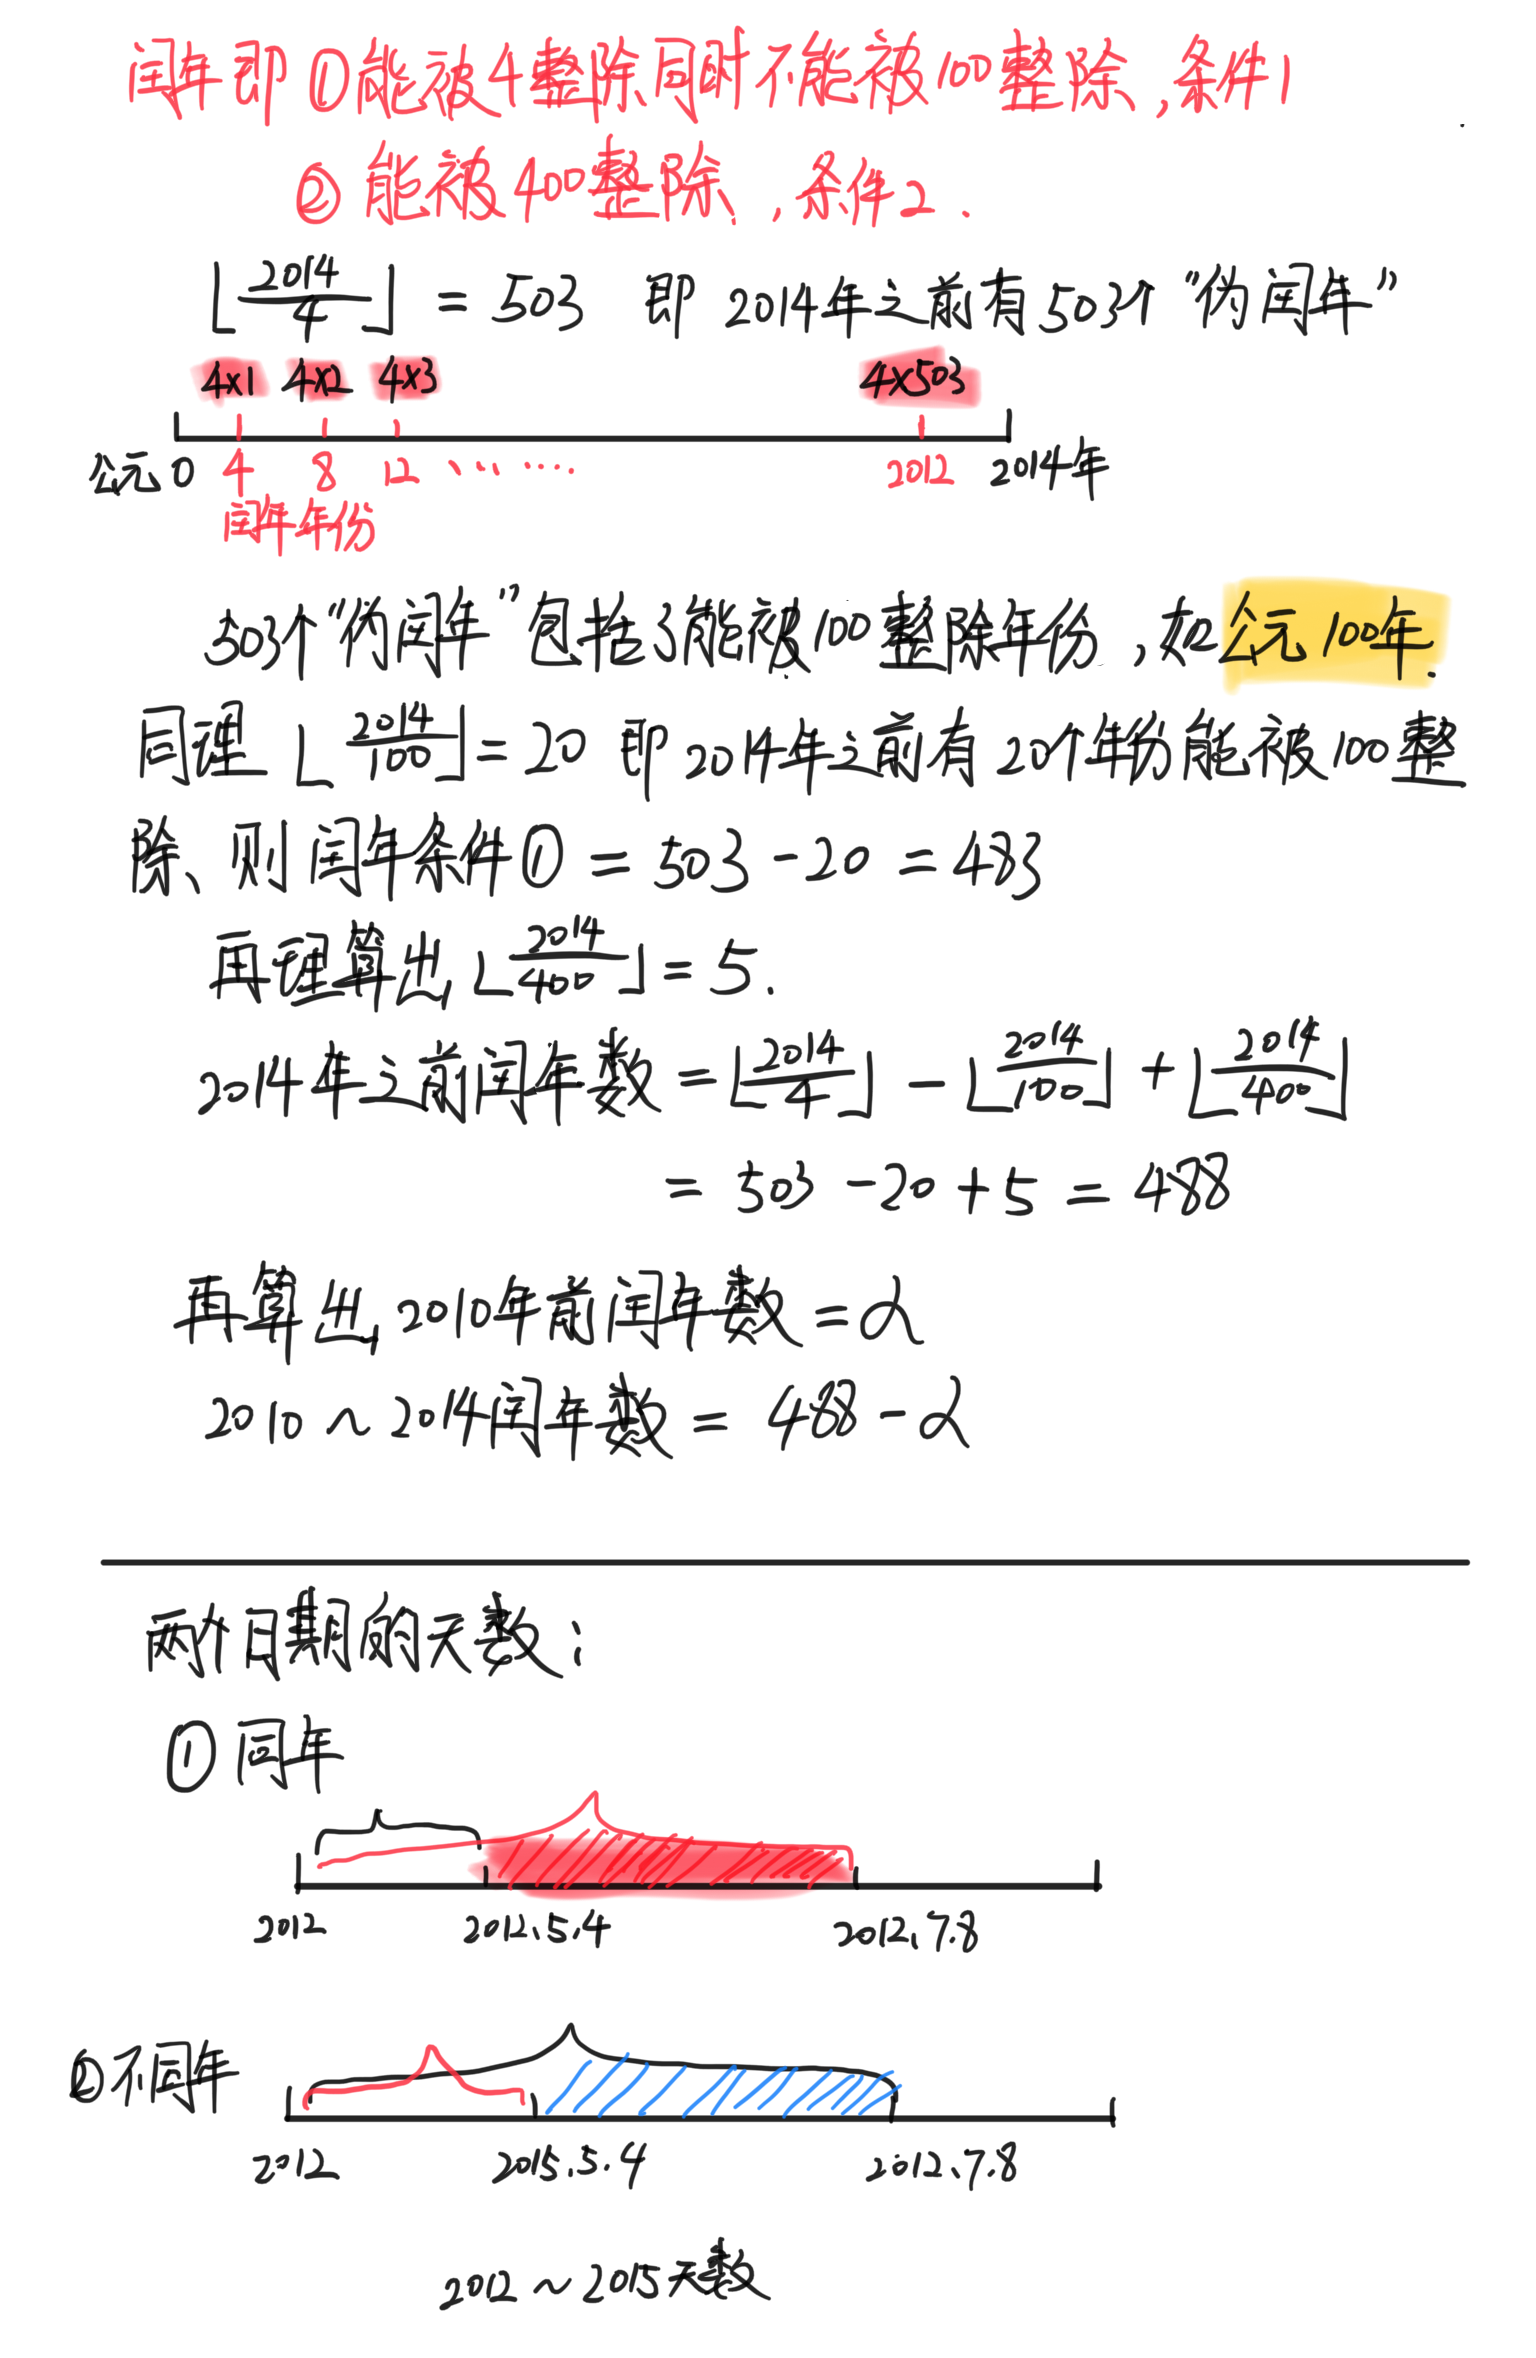 闰年即①能被4整除同时不能被100整除,条件1
②能被400整除,条件2.
⌊2014/4⌋ = 503 即 2014年之前有503个“伪闰年”
4×1 4×2 4×3 4×503
公元0 4 8 12 ········ 2012 2014年
闰年年份
503个“伪闰年”包括了能被100整除年份,如公元100年.
同理 ⌊2014/100⌋ = 20 即 2014年之前有20个年份能被100整
除、则闰年条件① = 503 - 20 = 483
再理算出 ⌊2014/400⌋ = 5.
2014年之前闰年数 = ⌊2014/4⌋ - ⌊2014/100⌋ + ⌊2014/400⌋
= 503 - 20 + 5 = 488
再算出 2010年前闰年数 = α
2010 ~ 2014闰年数 = 488 - α
两个日期的天数:
① 同年
2012 2012.5.4 2012.7.8
② 不同年
2012 2015.5.4 2012.7.8
2012 ~ 2015天数